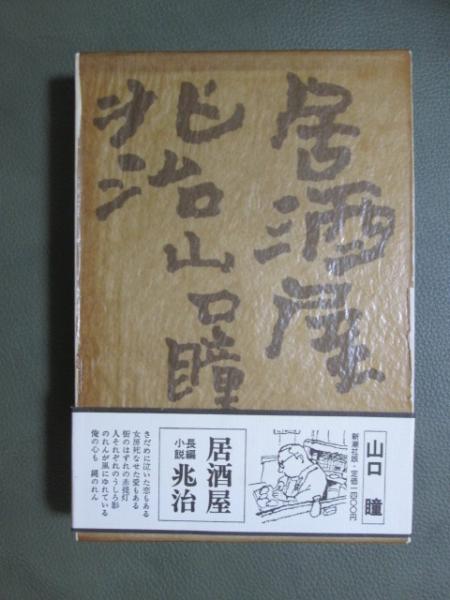 居酒屋
兆治山口瞳
兆治
山口 瞳
新潮社版・定価一四〇〇円
居酒屋
長編
小説
兆治
さだめに泣いた恋もある
女房死なせた愛もある
街のはずれの赤提灯
人それぞれのうしろ影
のれんが風にゆれている
俺の心も 縄のれん